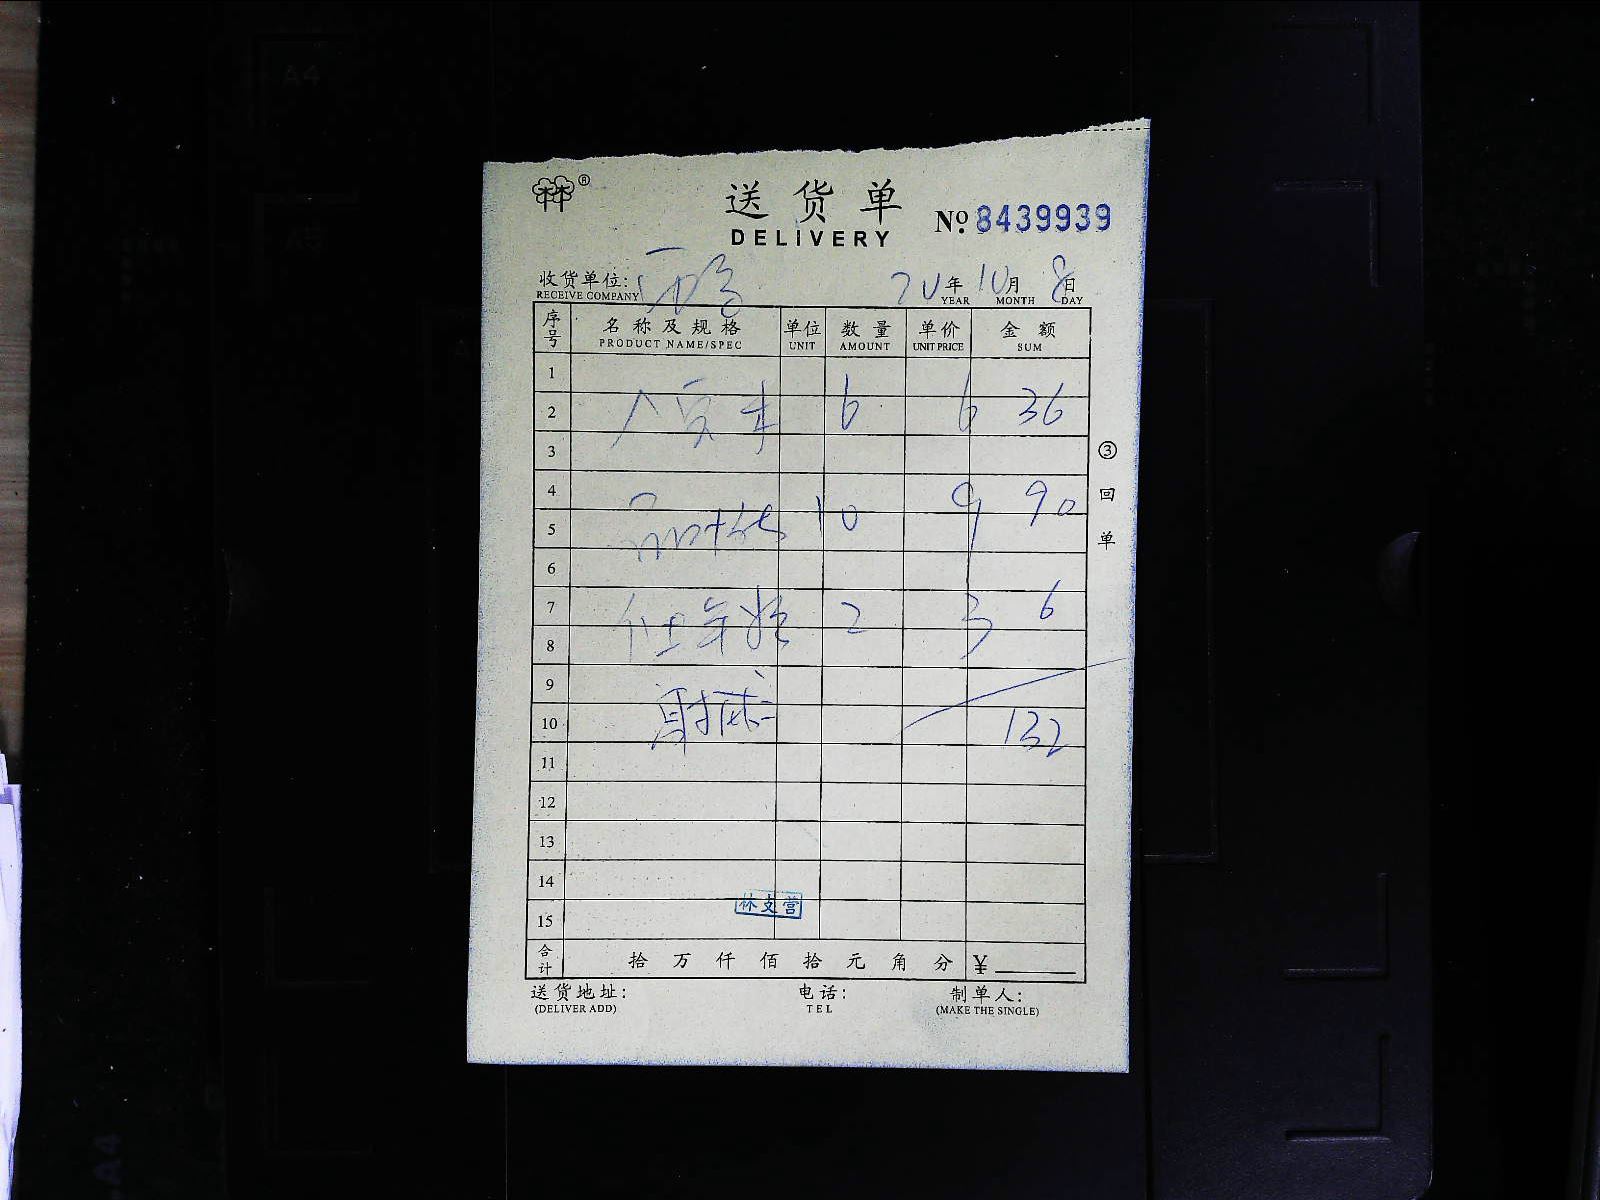 送货单
DELIVERY
№ 8439939
收货单位: 20年10月8日
RECEIVE COMPANY YEAR MONTH DAY
序号 名称及规格 单位 数量 单价 金额
PRODUCT NAME/SPEC UNIT AMOUNT UNIT PRICE SUM
1
2 6 6 36
3
4
5 10 9 90
6
7 2 3 6
8
9
10 132
11
12
13
14
15
林支营
合计 拾 万 仟 佰 拾 元 角 分 ¥
送货地址: 电话: 制单人:
(DELIVER ADD) TEL (MAKE THE SINGLE)
③回单
A4
A5
A4